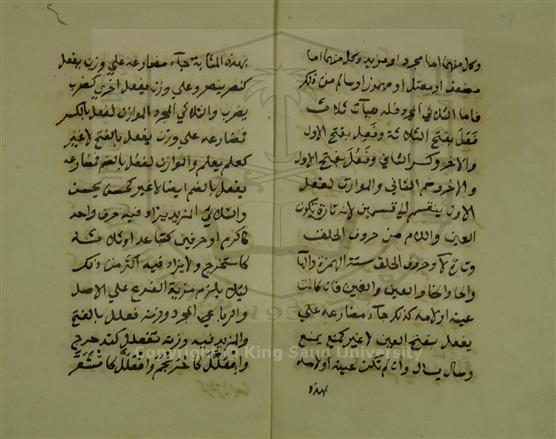 وكل منهما اما مجرد او مزيد وكل منهما اما
مضعف او معتل او مهموز او سالم من ذلك
فاما الثلاثي المجرد فله هيآت ثلاث
فَعَلَ بفتح الثلاثة وفَعِلَ بفتح الاول
والاخر وكسر الثاني وفَعُلَ بفتح الاول
والاخر وضم الثاني والموازن لفعل
الاول ينقسم الى قسمين لانه تارة يكون
العين واللام من حروف الحلق
وتارة لا وحروف الحلق ستة الهمزة والها
والحا والخا والعين والغين فان كانت
عينه او لامه كذلك جآء مضارعه علي
يفعل بفتح العين لا غير كمنع يمنع
وسال يسال وان لم تكن عينه او لامه
بهذه
بهذه المثابة جآء مضارعه علي وزن يفعل
كنصر ينصر وعلى وزن يفعل اخرى كضرب
يضرب والثلاثي المجرد الموازن لفعل بالكسر
مضارعه على وزن يفعل بالفتح لا غير
كعلم يعلم والموازن لفعل بالضم مضارعه
يفعل بالضم ايضا لا غير كحسن يحسن
والثلاثي المزيد يزاد فيه حرف واحد
كاكرم او حرفين كتباعد او ثلاثة
كاستخرج ولا يزاد فيه اكثر من ذلك
ليلا يلزم مزية الفرع علي الاصل
والرباعي المجرد وزنه فعلل بالفتح
والمزيد فيه وزنه تفعلل كتدحرج
وافعنلل كاحرنجم وافعلل كاقشعر
Copyright © King Saud University